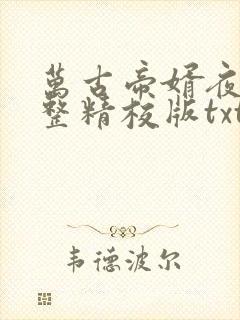 萬古帝婿夜
整精校版txt
韦德波尔